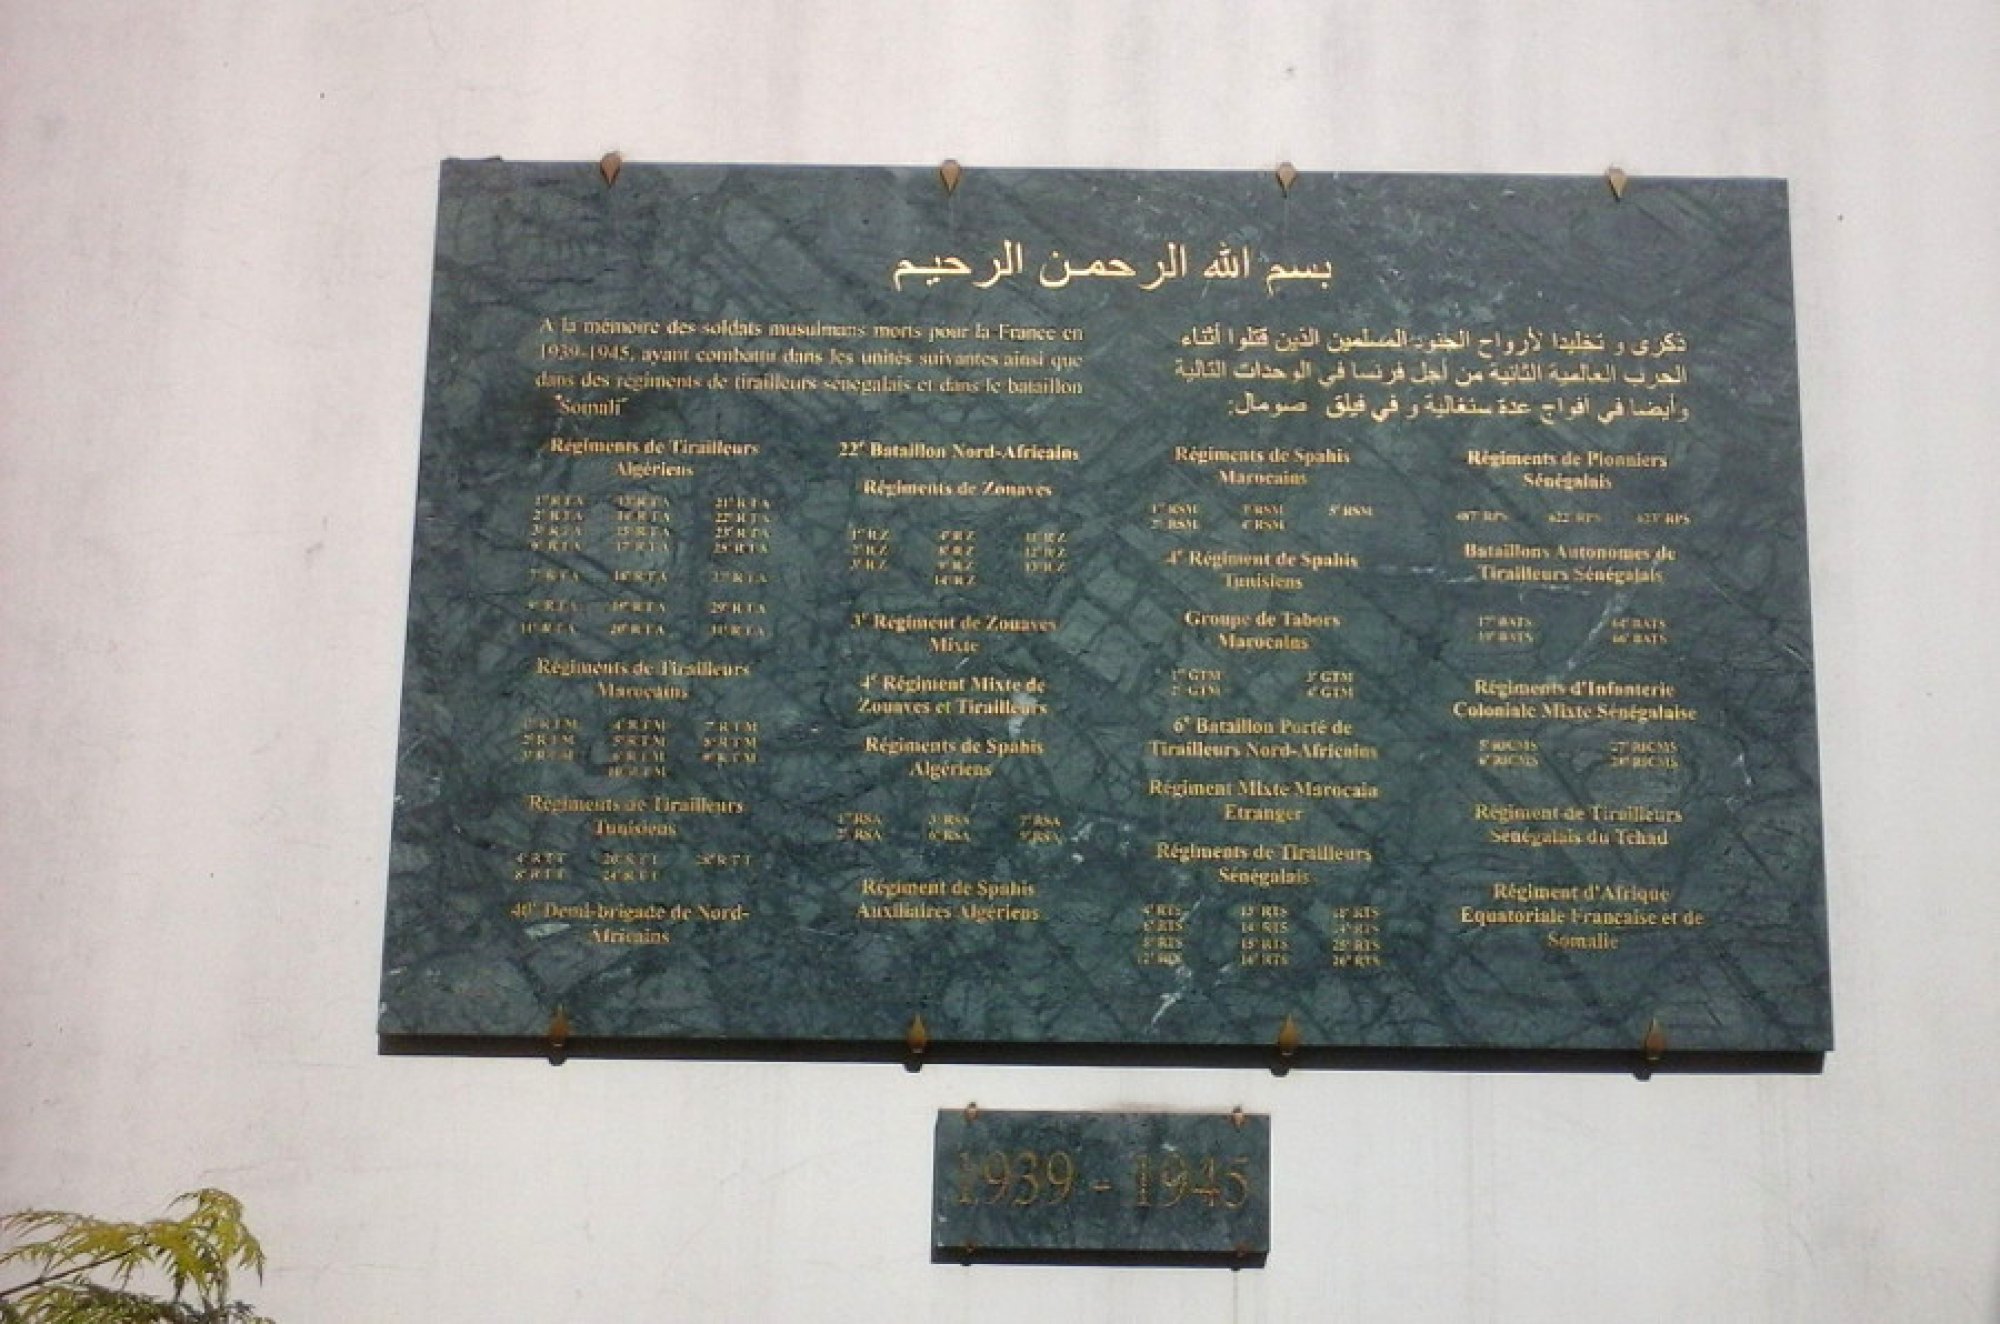 بسم الله الرحمن الرحيم
A la mémoire des soldats musulmans morts pour la France en
1939-1945, ayant combattu dans les unités suivantes ainsi que
dans des régiments de tirailleurs sénégalais et dans le bataillon
"Somali"
ذكرى و تخليدا لأرواح الجنود المسلمين الذين قتلوا أثناء
الحرب العالمية الثانية من أجل فرنسا في الوحدات التالية
وأيضا في أفواج عدة سنغالية و في فيلق صومال:
Régiments de Tirailleurs
Algériens
21ᵉ R T A
22ᵉ R T A
23ᵉ R T A
17ᵉ R T A 25ᵉ R T A
7ᵉ R T A
19ᵉ R T A 29ᵉ R T A
11ᵉ R T A 20ᵉ R T A 31ᵉ R T A
Régiments de Tirailleurs
Marocains
1ᵉʳ R T M 4ᵉ R T M 7ᵉ R T M
2ᵉ R T M 5ᵉ R T M 8ᵉ R T M
3ᵉ R T M 6ᵉ R T M 9ᵉ R T M
10ᵉ R T M
Régiments de Tirailleurs
Tunisiens
4ᵉ R T T 20ᵉ R T T 28ᵉ R T T
8ᵉ R T T 24ᵉ R T T
40ᵉ Demi-brigade de Nord-
Africains
22ᵉ Bataillon Nord-Africains
Régiments de Zouaves
1ᵉʳ R Z 4ᵉ R Z 11ᵉ R Z
2ᵉ R Z 8ᵉ R Z 12ᵉ R Z
3ᵉ R Z 9ᵉ R Z 13ᵉ R Z
14ᵉ R Z
3ᵉ Régiment de Zouaves
Mixte
4ᵉ Régiment Mixte de
Zouaves et Tirailleurs
Régiments de Spahis
Algériens
1ᵉʳ RSA 3ᵉ RSA 7ᵉ RSA
2ᵉ RSA 6ᵉ RSA 9ᵉ RSA
Régiment de Spahis
Auxiliaires Algériens
Régiments de Spahis
Marocains
1ᵉʳ RSM 3ᵉ RSM 5ᵉ RSM
2ᵉ RSM 4ᵉ RSM
4ᵉ Régiment de Spahis
Tunisiens
Groupe de Tabors
Marocains
1ᵉʳ GTM 3ᵉ GTM
2ᵉ GTM 4ᵉ GTM
6ᵉ Bataillon Porté de
Tirailleurs Nord-Africains
Régiment Mixte Marocain
Etranger
Régiments de Tirailleurs
Sénégalais
4ᵉ RTS 13ᵉ RTS 18ᵉ RTS
6ᵉ RTS 14ᵉ RTS 24ᵉ RTS
8ᵉ RTS 15ᵉ RTS 25ᵉ RTS
12ᵉ RTS 16ᵉ RTS 26ᵉ RTS
Régiments de Pionniers
Sénégalais
487ᵉ RPS 622ᵉ RPS 623ᵉ RPS
Bataillons Autonomes de
Tirailleurs Sénégalais
17ᵉ BATS 64ᵉ BATS
19ᵉ BATS 66ᵉ BATS
Régiments d'Infanterie
Coloniale Mixte Sénégalaise
5ᵉ RICMS 27ᵉ RICMS
6ᵉ RICMS RICMS
Régiment de Tirailleurs
Sénégalais du Tchad
Régiment d'Afrique
Equatoriale Française et de
Somalie
1939 - 1945